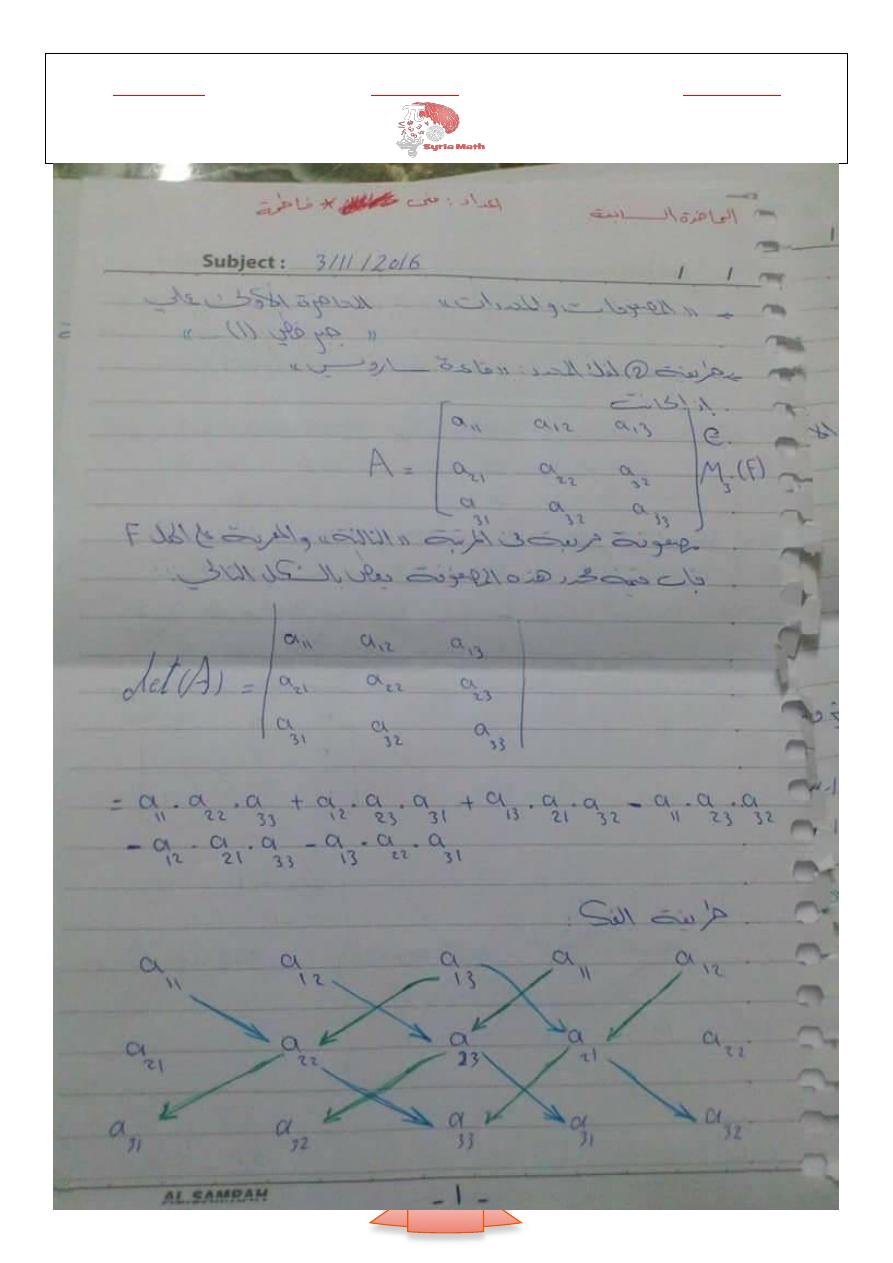 Syria Math
المحاضرة السابعة
اعداد : منى * فاطمة
Subject : 3/11/2016 / /
« المصفوفات والمحددات » المحاضرة الأولى عملي
« جبر خطي (1) »
طريقة ② لفك المحدد: «قاعدة ساروس»
إذا كانت
A = [ a11 a12 a13
a21 a22 a32
a31 a32 a33 ] ∈ M3(F)
مصفوفة مربعة من المرتبة «الثالثة» والمعرفة على الحقل F
فإن قيمة محدد هذه المصفوفة يعطى بالشكل التالي:
det(A) = | a11 a12 a13
a21 a22 a23
a31 a32 a33 |
= a11 . a22 . a33 + a12 . a23 . a31 + a13 . a21 . a32 - a11 . a23 . a32
- a12 . a21 . a33 - a13 . a22 . a31
طريقة الفك:
a11 a12 a13 a11 a12
a21 a22 a23 a21 a22
a31 a32 a33 a31 a32
AL.SAMRAH
- 1 -